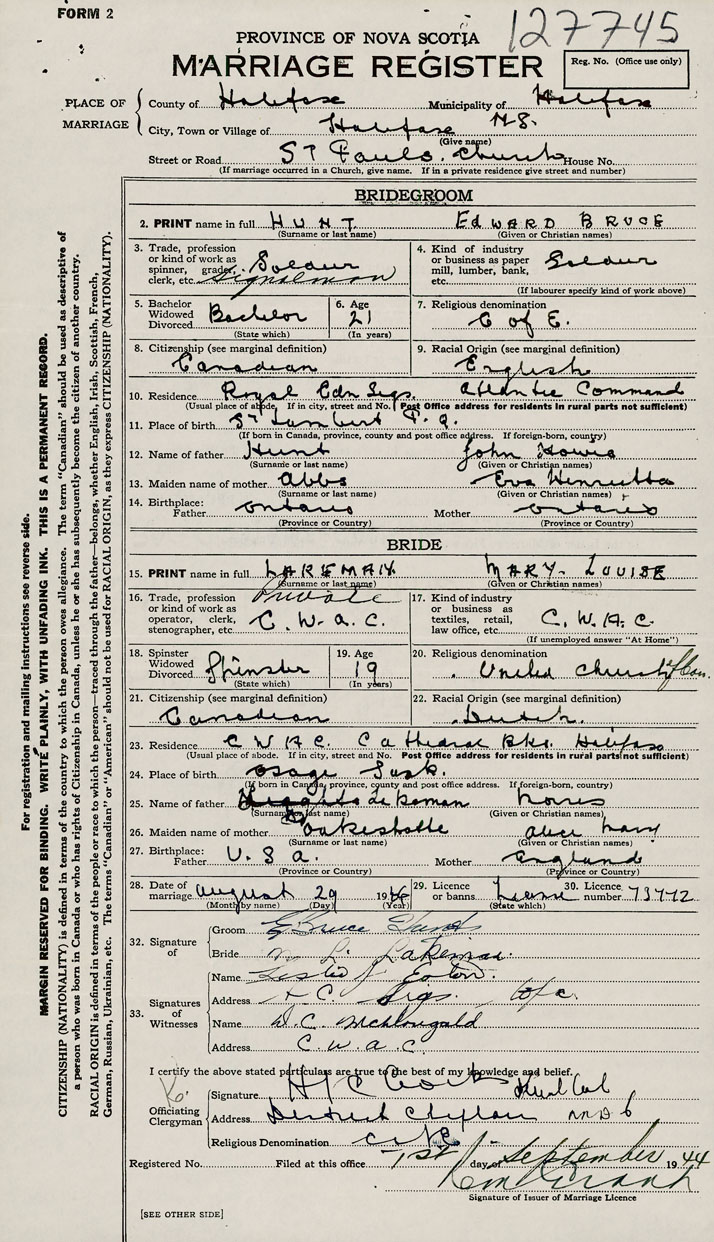 FORM 2
127745
PROVINCE OF NOVA SCOTIA
MARRIAGE REGISTER
Reg. No. (Office use only)
PLACE OF MARRIAGE
County of Halifax Municipality of Halifax
City, Town or Village of Halifax N.S.
(Give name)
Street or Road St Pauls. Church House No.
(If marriage occurred in a Church, give name. If in a private residence give street and number)
BRIDEGROOM
2. PRINT name in full HUNT EDWARD BRUCE
(Surname or last name) (Given or Christian names)
3. Trade, profession or kind of work as spinner, grader, clerk, etc. Soldier Signalman
4. Kind of industry or business as paper mill, lumber, bank, etc. Soldier
(If labourer specify kind of work above)
5. Bachelor Widowed Divorced Bachelor
(State which)
6. Age 21
(In years)
7. Religious denomination C of E.
8. Citizenship (see marginal definition) Canadian
9. Racial Origin (see marginal definition) English
10. Residence Royal Cdn Sigs. Atlantic Command
(Usual place of abode. If in city, street and No. Post Office address for residents in rural parts not sufficient)
11. Place of birth St Lambert P.Q.
(If born in Canada, province, county and post office address. If foreign-born, country)
12. Name of father Hunt John
(Surname or last name) (Given or Christian names)
13. Maiden name of mother Abbs Eva Henrietta
(Surname or last name) (Given or Christian names)
14. Birthplace: Father Ontario Mother Ontario
(Province or Country) (Province or Country)
BRIDE
15. PRINT name in full LAKEMAN MARY-LOUISE
(Surname or last name) (Given or Christian names)
16. Trade, profession or kind of work as operator, clerk, stenographer, etc. Private C.W.A.C.
17. Kind of industry or business as textiles, retail, law office, etc. C.W.A.C.
(If unemployed answer "At Home")
18. Spinster Widowed Divorced Spinster
(State which)
19. Age 19
(In years)
20. Religious denomination United Church of Can.
21. Citizenship (see marginal definition) Canadian
22. Racial Origin (see marginal definition) Dutch.
23. Residence C W A C. Cathedral Bks. Halifax
(Usual place of abode. If in city, street and No. Post Office address for residents in rural parts not sufficient)
24. Place of birth Osage Sask.
(If born in Canada, province, county and post office address. If foreign-born, country)
25. Name of father Lakeman Norris
(Surname or last name) (Given or Christian names)
26. Maiden name of mother Oakeshotte Alice Mary
(Surname or last name) (Given or Christian names)
27. Birthplace: Father U.S.A. Mother England
(Province or Country) (Province or Country)
28. Date of marriage August 29 1944
(Month by name) (Day) (Year)
29. Licence or banns
(State which)
30. Licence number 73772
32. Signature of
Groom E Bruce Hunt
Bride M. L. Lakeman
33. Signatures of Witnesses
Name Leslie J Eaton.
Address R.C. Sigs.
Name
Address C.W.A.C.
I certify the above stated particulars are true to the best of my knowledge and belief.
Officiating Clergyman
Signature
Address District Chaplain M D 6
Religious Denomination
Registered No. Filed at this office 1st day of September 1944
Signature of Issuer of Marriage Licence
[SEE OTHER SIDE]
For registration and mailing instructions see reverse side.
MARGIN RESERVED FOR BINDING. WRITE PLAINLY, WITH UNFADING INK. THIS IS A PERMANENT RECORD.
CITIZENSHIP (NATIONALITY) is defined in terms of the country to which the person owes allegiance. The term "Canadian" should be used as descriptive of
a person who was born in Canada or who has rights of Citizenship in Canada, unless he or she has subsequently become the citizen of another country.
RACIAL ORIGIN is defined in terms of the people or race to which the person—traced through the father—belongs, whether English, Irish, Scottish, French,
German, Russian, Ukrainian, etc. The terms "Canadian" or "American" should not be used for RACIAL ORIGIN, as they express CITIZENSHIP (NATIONALITY).